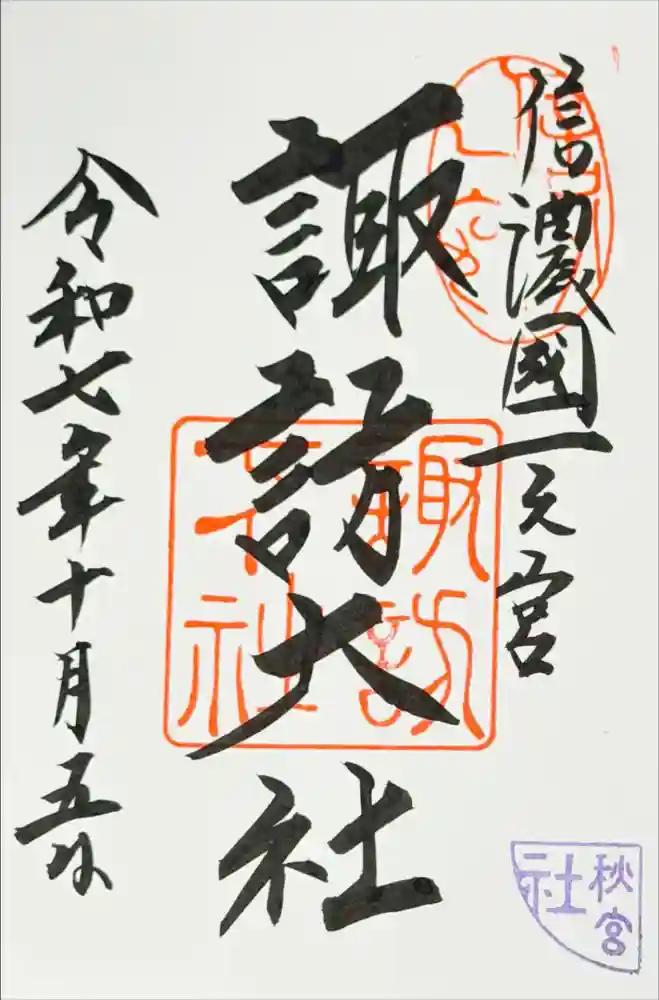 信濃國一之宮
諏訪大社
令和七年十月五日
諏訪
下社
秋宮
社